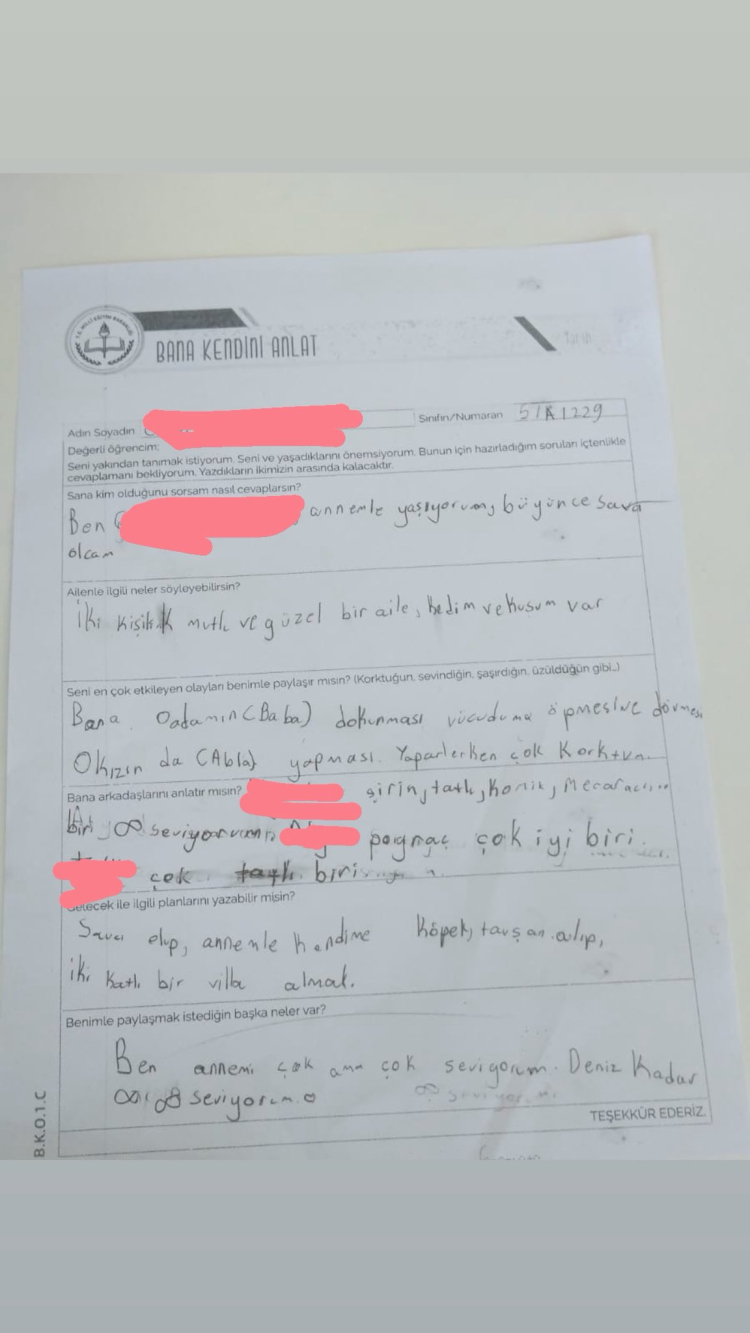 BANA KENDİNİ ANLAT
Adın Soyadın
Sınıfın/Numaran 5/A 1229
Değerli öğrencim;
Seni yakından tanımak istiyorum. Seni ve yaşadıklarını önemsiyorum. Bunun için hazırladığım soruları içtenlikle
cevaplamanı bekliyorum. Yazdıkların ikimizin arasında kalacaktır.
Sana kim olduğunu sorsam nasıl cevaplarsın?
Ben annemle yaşıyorum, büyünce Sava
olcam
Ailenle ilgili neler söyleyebilirsin?
İki kişilik mutlu ve güzel bir aile, kedim ve kusum var
Seni en çok etkileyen olayları benimle paylaşır mısın? (Korktuğun, sevindiğin, şaşırdığın, üzüldüğün gibi...)
Bana Oadamın (Baba) dokunması vücuduma öpmesi ve dövmesi
O kızın da (Abla) yapması. Yaparlerken çok Korktum.
Bana arkadaşlarını anlatır mısın?
şirin, tatlı, Komik,
biri ∞ seviyorum
çok iyi biri.
çok tatlı biri
Gelecek ile ilgili planlarını yazabilir misin?
Savcı olup, annemle kendime köpek, tavşan alıp,
iki katlı bir villa almak.
Benimle paylaşmak istediğin başka neler var?
Ben annemi çok ama çok seviyorum. Deniz Kadar
seviyorum.
TEŞEKKÜR EDERİZ.
B.K.O.1.C